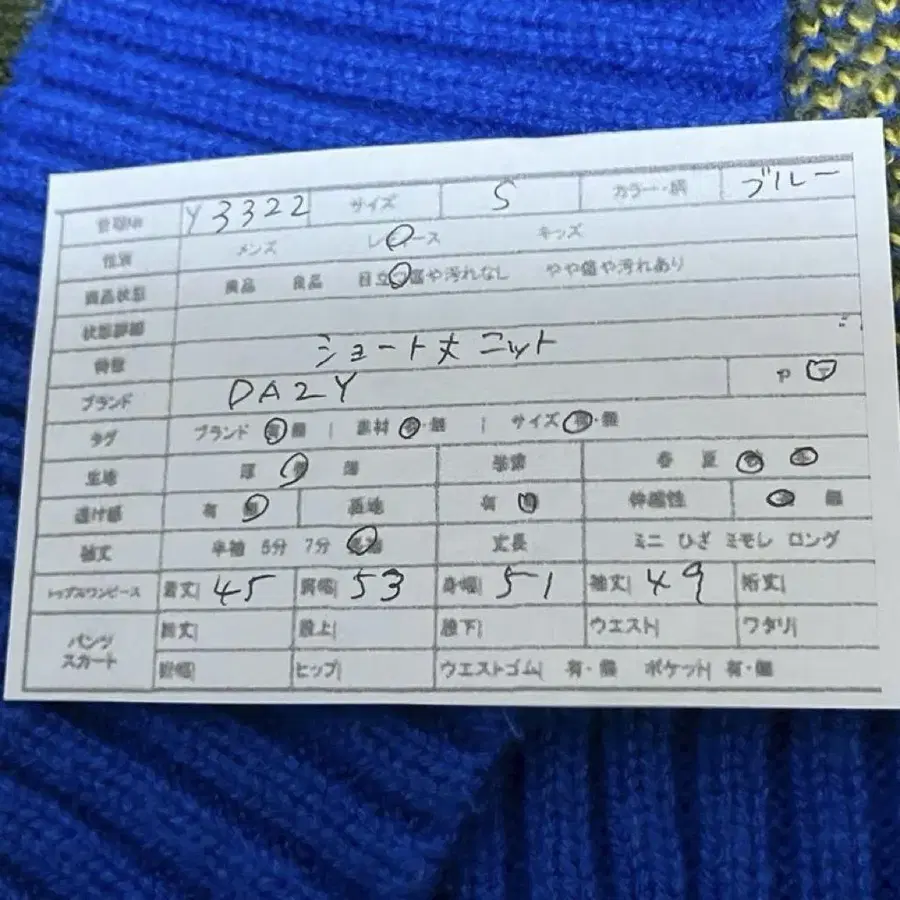 管理No Y3322 サイズ S カラー・柄 ブルー
性別 メンズ レース キッズ
商品状態 美品 良品 目立 傷や汚れなし やや傷や汚れあり
状態詳細
特徴 ショート丈ニット
ブランド DAZY
タグ ブランド 無 | 素材 ・無 | サイズ ・無
生地 厚 薄 季節 春 夏
透け感 有 裏地 有 伸縮性 無
袖丈 半袖 5分 7分 丈長 ミニ ひざ ミモレ ロング
トップスワンピース 着丈| 45 肩幅| 53 身幅| 51 袖丈| 49 裄丈|
パンツスカート 総丈| 股上| 股下| ウエスト| ワタリ|
裾幅| ヒップ| ウエストゴム| 有・無 ポケット| 有・無